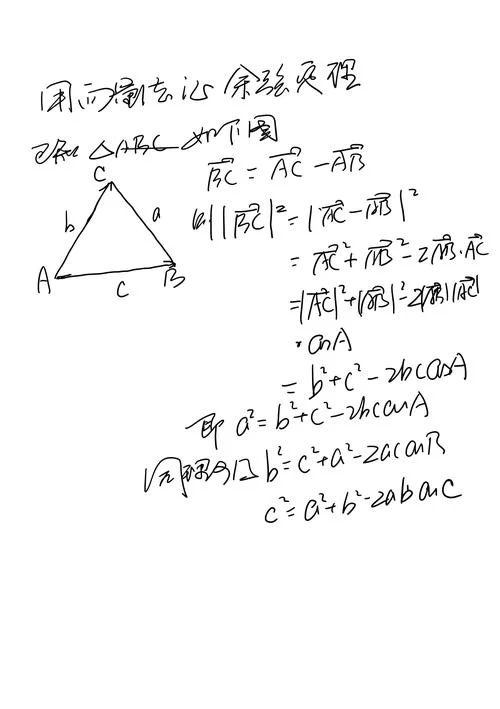 用向量法证余弦定理
已知 △ABC 如下图
C
b
a
A
B
c
\vec{BC} = \vec{AC} - \vec{AB}
则||\vec{BC}|² = |\vec{AC} - \vec{AB}|²
= \vec{AC}² + \vec{AB}² - 2\vec{AB}·\vec{AC}
= |\vec{AC}|² + |\vec{AB}|² - 2|\vec{AB}||\vec{AC}|
· cosA
= b² + c² - 2bc cosA
即 a² = b² + c² - 2bc cosA
同理可证 b² = c² + a² - 2ac cosB
c² = a² + b² - 2ab cosC